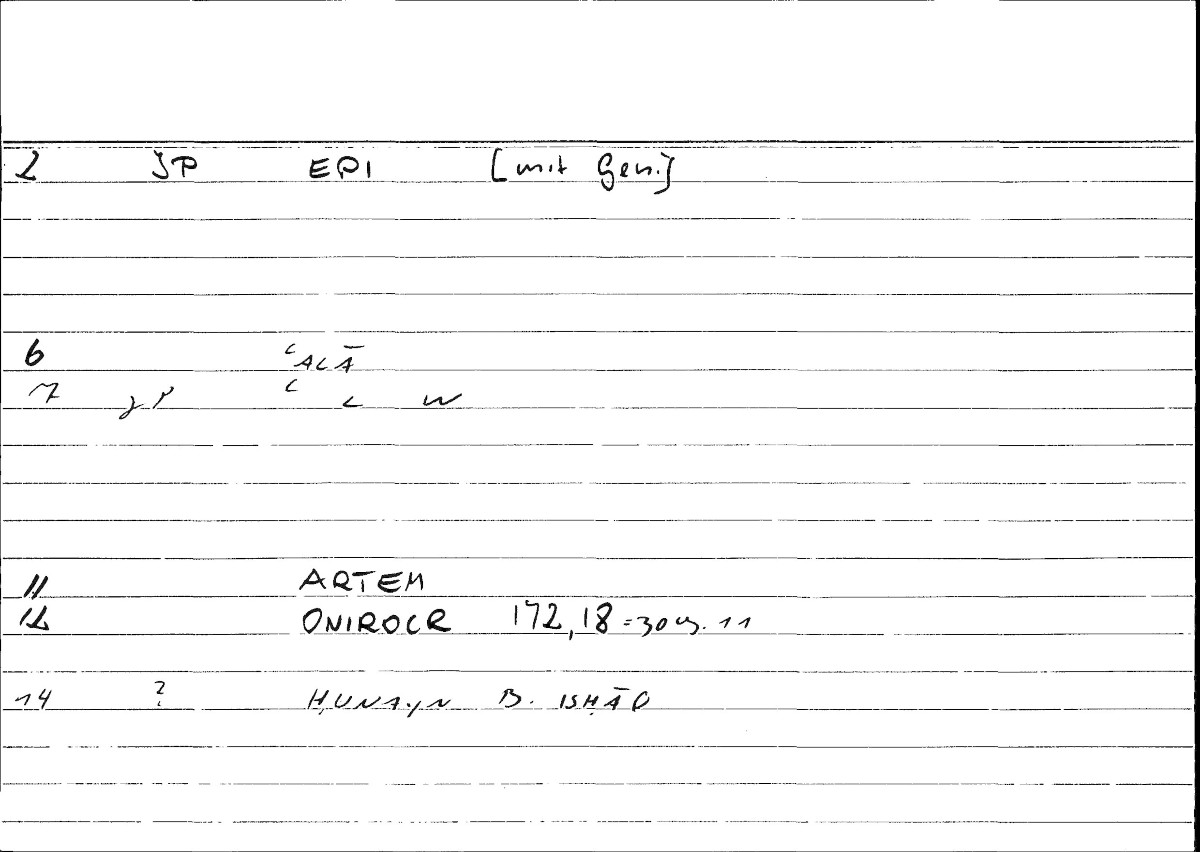 2 JP EPI [mit Gen.]
6 ʿALĀ
7 JP ʿ L W
11 ARTEM
12 ONIROCR 172,18 = 309. 11
14 ? ḤUNAYN B. ISḤĀQ